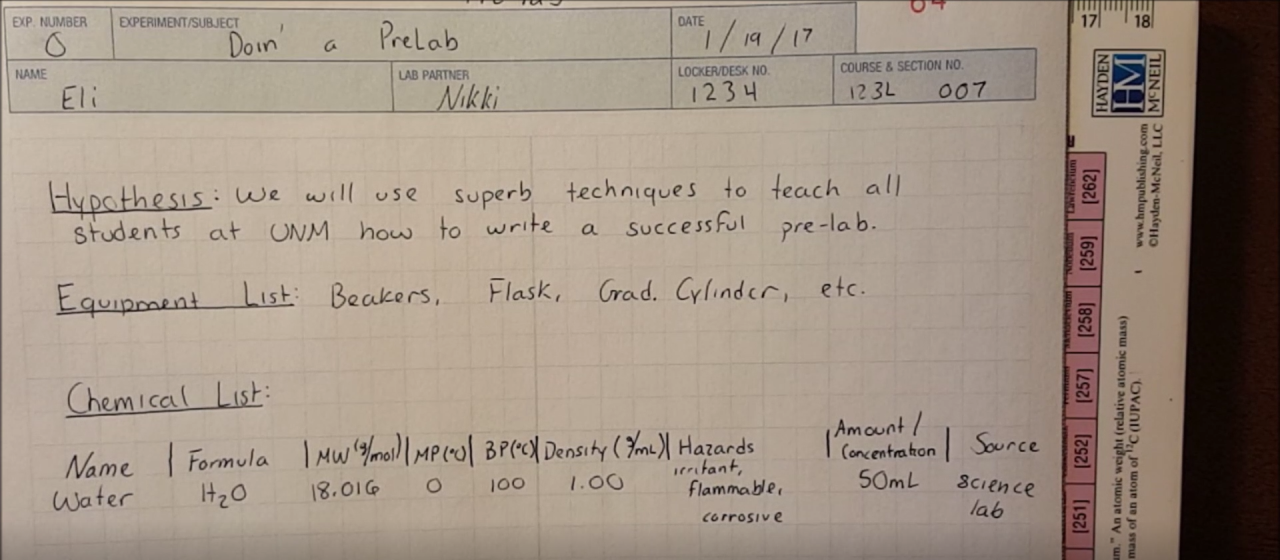 EXP. NUMBER EXPERIMENT/SUBJECT DATE
0 Doin' a PreLab 1/19/17
NAME LAB PARTNER LOCKER/DESK NO. COURSE & SECTION NO.
Eli Nikki 1234 123L 007
Hypothesis: We will use superb techniques to teach all
students at UNM how to write a successful pre-lab.
Equipment List: Beakers, Flask, Grad. Cylinder, etc.
Chemical List:
Name | Formula | MW (g/mol) | MP (°C) | BP (°C) | Density (g/mL) | Hazards | Amount / Concentration | Source
Water H₂O 18.016 0 100 1.00 irritant, flammable, corrosive 50mL Science lab
17 18
HAYDEN
HM
McNEIL
www.hmpublishing.com
©Hayden-McNeil, LLC
[262]
[259]
[258]
[257]
[252]
[251]
m." An atomic weight (relative atomic mass)
mass of an atom of ¹²C (IUPAC).